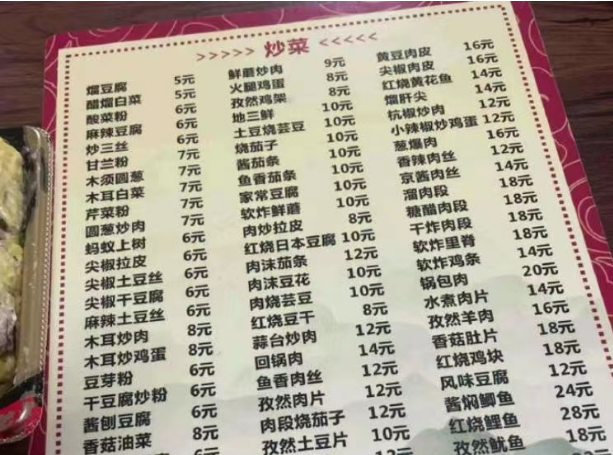 >>>>> 炒菜 <<<<<
熘豆腐 5元
醋熘白菜 5元
酸菜粉 6元
麻辣豆腐 6元
炒三丝 6元
甘兰粉 7元
木须圆葱 7元
木耳白菜 7元
芹菜粉 7元
圆葱炒肉 7元
蚂蚁上树 6元
尖椒拉皮 6元
尖椒土豆丝 6元
尖椒干豆腐 6元
麻辣土豆丝 6元
木耳炒肉 8元
木耳炒鸡蛋 8元
豆芽粉 6元
干豆腐炒粉 6元
酱刨豆腐 6元
香菇油菜 8元
鲜蘑炒肉 9元
火腿鸡蛋 8元
孜然鸡架 8元
地三鲜 10元
土豆烧芸豆 10元
烧茄子 10元
酱茄条 10元
鱼香茄条 10元
家常豆腐 10元
软炸鲜蘑 10元
肉炒拉皮 8元
红烧日本豆腐 10元
肉沫茄条 12元
肉沫豆花 10元
肉烧芸豆 10元
红烧豆干 8元
蒜台炒肉 12元
回锅肉 14元
鱼香肉丝 12元
孜然肉片 12元
肉段烧茄子 12元
孜然土豆片 10元
黄豆肉皮 16元
尖椒肉皮 16元
红烧黄花鱼 14元
熘肝尖 14元
杭椒炒肉 12元
小辣椒炒鸡蛋 12元
葱爆肉 16元
香辣肉丝 12元
京酱肉丝 14元
溜肉段 18元
糖醋肉段 18元
干炸肉段 18元
软炸里脊 18元
软炸鸡条 14元
锅包肉 20元
水煮肉片 14元
孜然羊肉 16元
香菇肚片 18元
红烧鸡块 18元
风味豆腐 12元
酱焖鲫鱼 24元
红烧鲤鱼 28元
孜然鱿鱼 18元